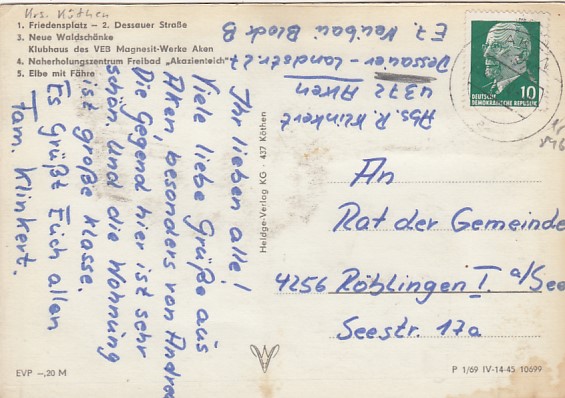 Krs. Köthen
1. Friedensplatz – 2. Dessauer Straße
3. Neue Waldschänke
Klubhaus des VEB Magnesit-Werke Aken
4. Naherholungszentrum Freibad „Akazienteich"
5. Elbe mit Fähre
Ihr lieben alle!
Viele liebe Grüße aus
Aken, besonders von Andrea
Die Gegend hier ist sehr
schön und die Wohnung
ist große Klasse.
Es grüßt Euch allen
Fam. Klinkert.
Abs. R. Klinkert
4372 Aken
Dessauer-Landstr. 27
E7. Neubau Block B
Heldge-Verlag KG · 437 Köthen
DEUTSCHE
DEMOKRATISCHE REPUBLIK
10
An
Rat der Gemeinde
4256 Röblingen I. a/See
Seestr. 17a
EVP –,20 M
P 1/69 IV-14-45 10699